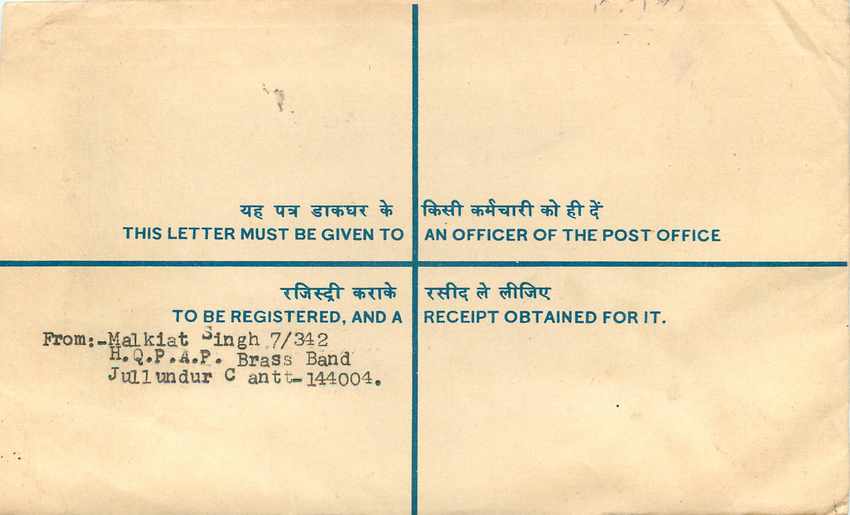 यह पत्र डाकघर के किसी कर्मचारी को ही दें
THIS LETTER MUST BE GIVEN TO AN OFFICER OF THE POST OFFICE
रजिस्ट्री कराके रसीद ले लीजिए
TO BE REGISTERED, AND A RECEIPT OBTAINED FOR IT.
From:-Malkiat Singh 7/342
H.Q.P.A.P. Brass Band
Jullundur C antt-144004.